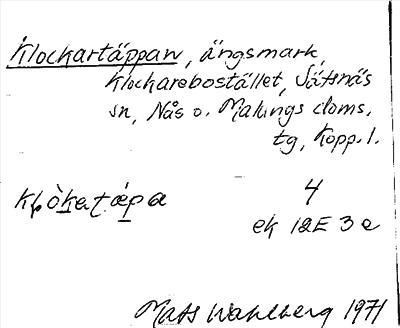 Klockartäppan, ängsmark,
Klockarebostället, Säfsnäs
sn, Nås o. Malungs doms.
tg, Kopp. l.
4
ek 12E 3e
Mats Wahlberg 1971